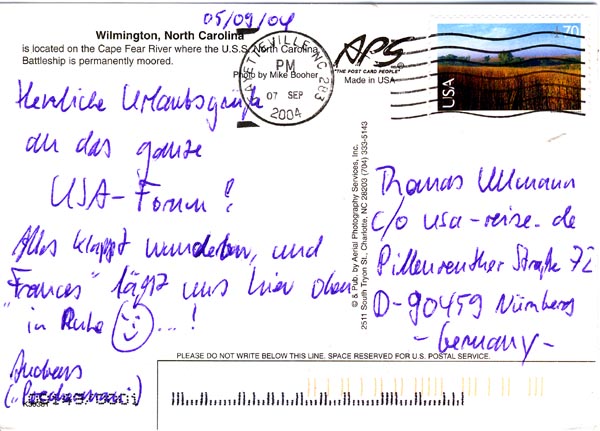 05/09/04
Wilmington, North Carolina
is located on the Cape Fear River where the U.S.S. North Carolina
Battleship is permanently moored.
Photo by Mike Booher
APS
"THE POST CARD PEOPLE"
Made in USA
FAYETTEVILLE NC 283
PM
07 SEP
2004
70
USA
Herzliche Urlaubsgrüße
an das ganze
USA-Forum!
Alles klappt wunderbar, und
"Frances" lässt uns hier oben
in Ruhe ☺...!
Andreas
© & Pub. by Aerial Photography Services, Inc.
2511 South Tryon St., Charlotte, NC 28203 (704) 333-5143
Thomas Ullmann
c/o usa-reise.de
Pillenreuther Straße 72
D-90459 Nürnberg
-Germany-
PLEASE DO NOT WRITE BELOW THIS LINE. SPACE RESERVED FOR U.S. POSTAL SERVICE.